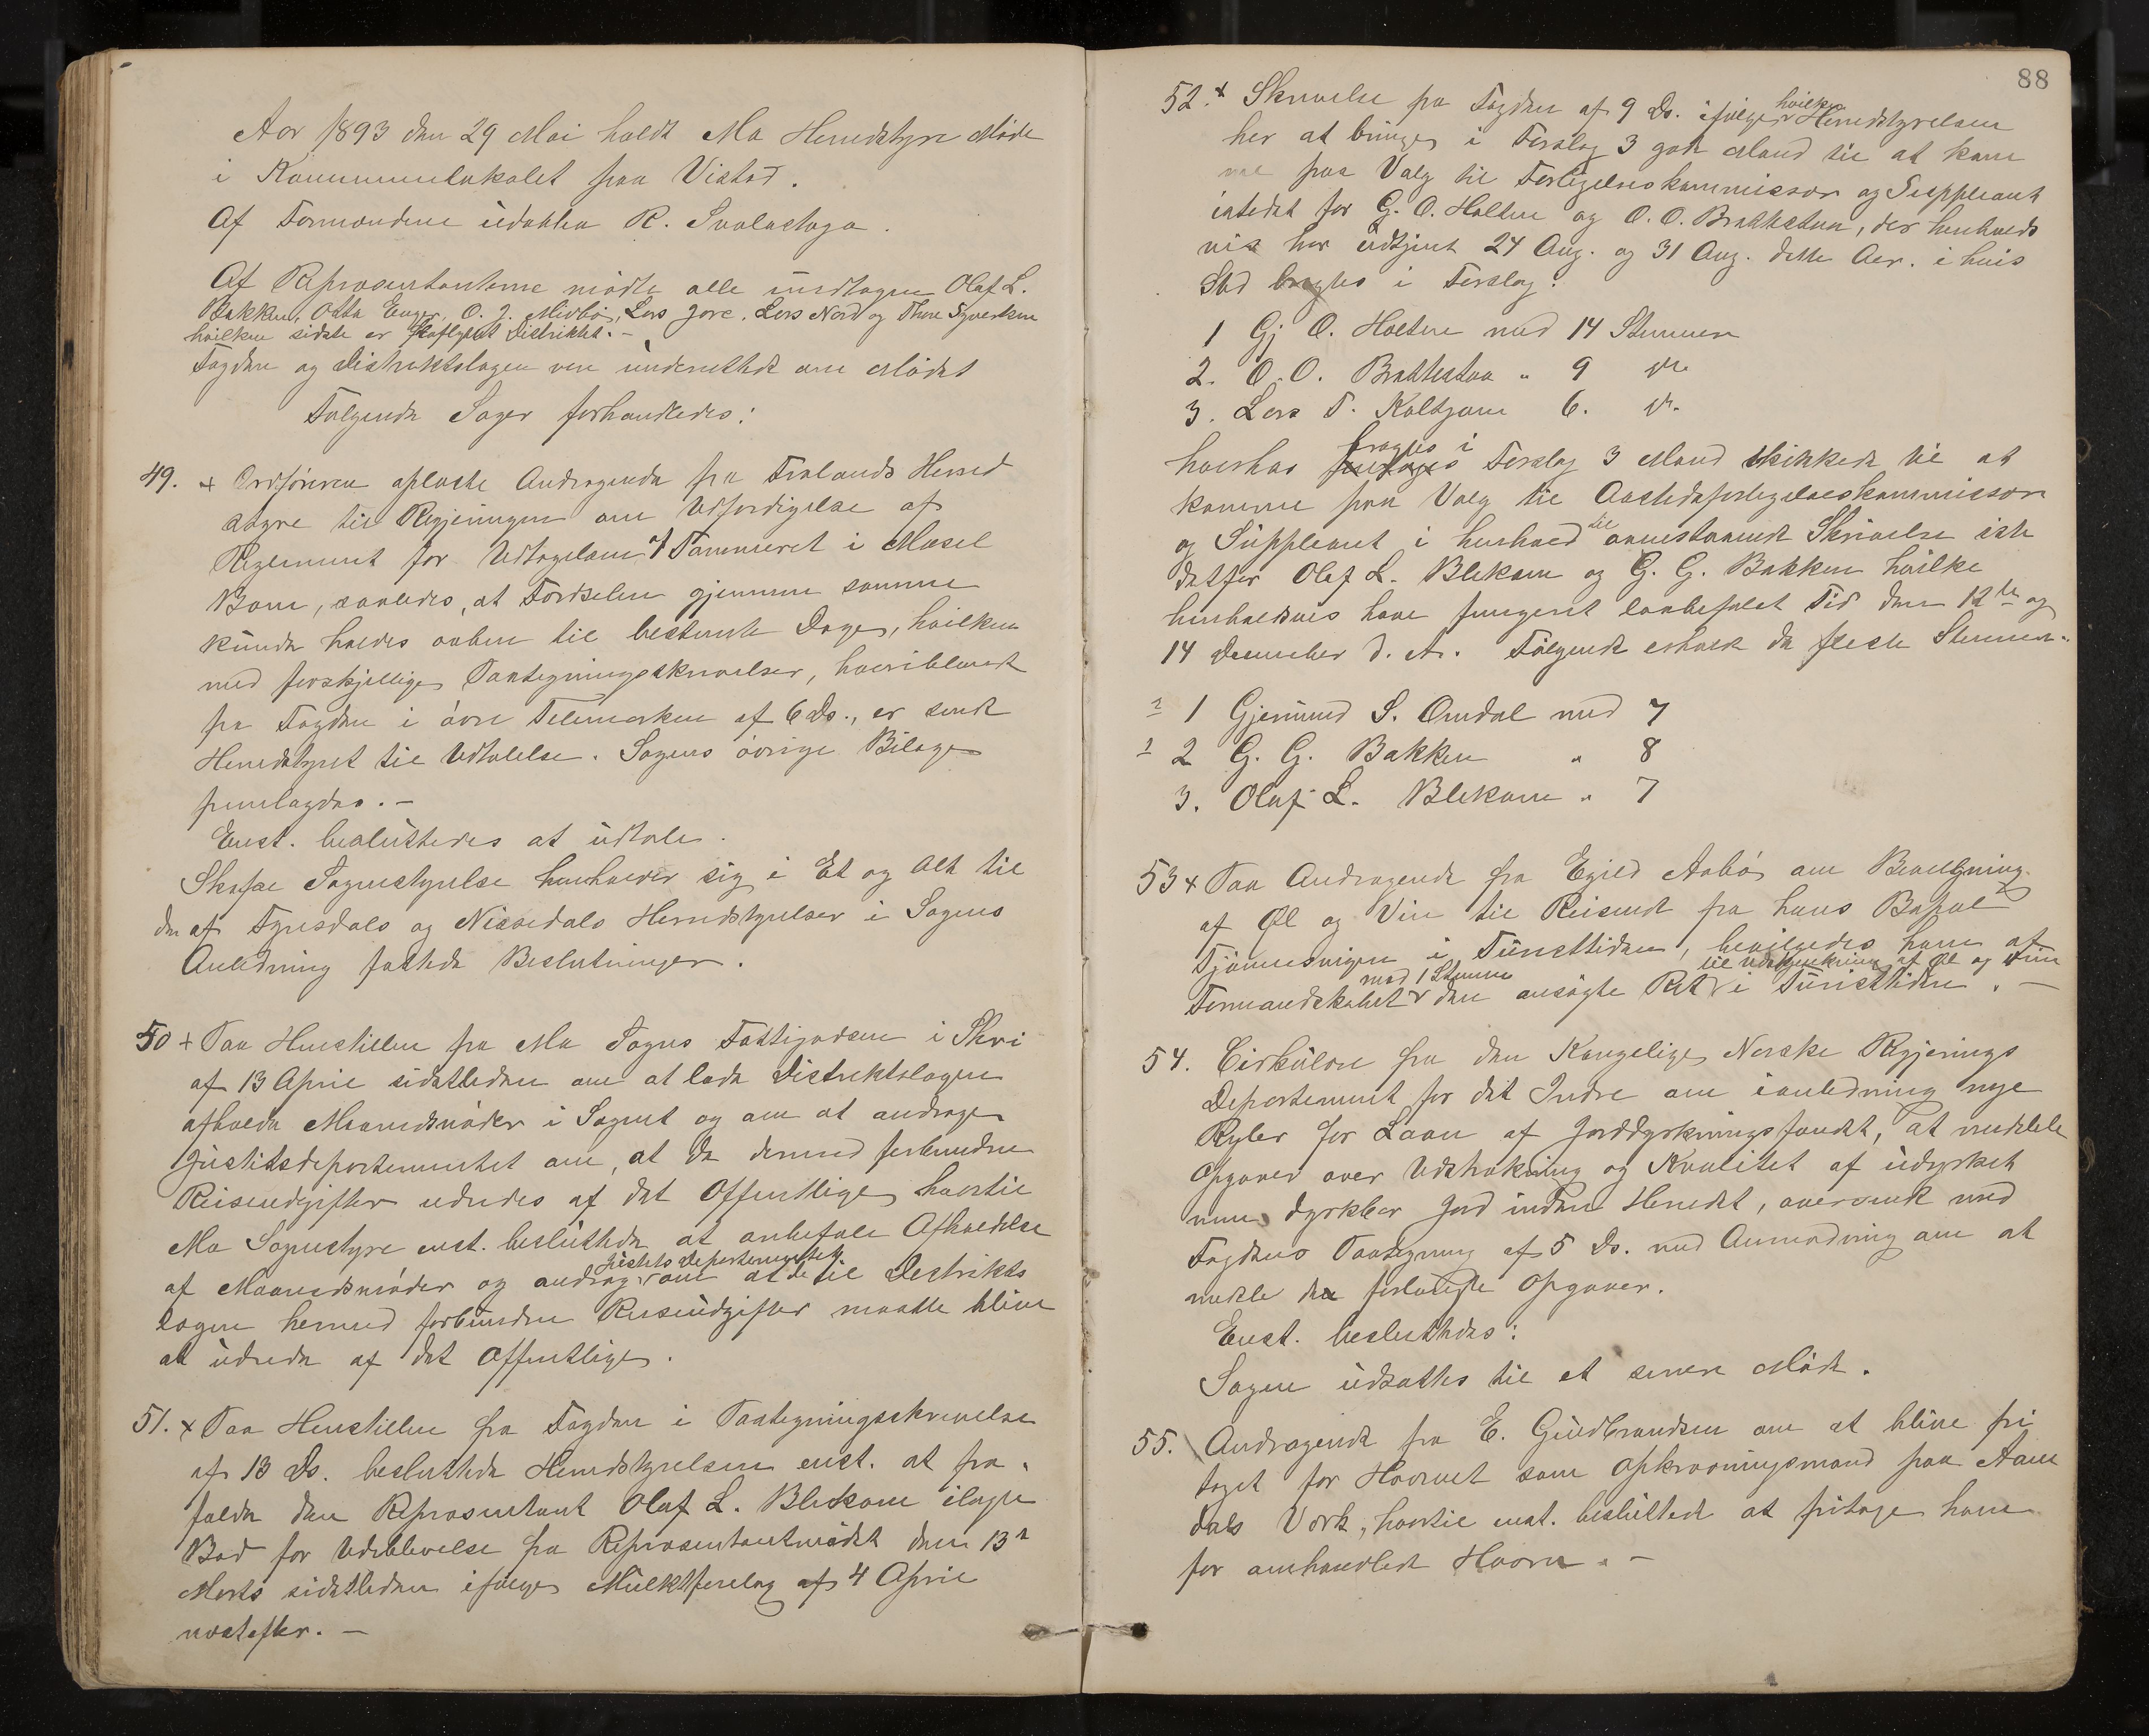 Aar 1893 den 29 Mai holdt Mo Herredstyre Møde
i Kommunelokalet paa Vistad.
Af Formændene udeblev R. Svalastoga.
Af Repræsentanterne mødte alle undtagen Olaf L.
Bakken, Otto Enger, O. J. Midbø, Lars Jore, Lars Nord og
hvilken sidste er fraflyttet Distriktet. –
Fogden og Distriktslægen var underrettede om Mødet
Følgende Sager forhandledes:
49. + Ordføreren oplæste Andragende fra Fralands Herred
styre til Regjeringen om Udfærdigelse af
Reglement for Udtagelsen af Tømmeret i
Bom, saaledes, at Færdselen gjennem samme
kunde holdes aaben til bestemte Dage, hvilken
med forskjellige Paategningsskrivelser, hvoriblandt
fra Fogden i øvre Telemarken af 6 ds., er sendt
Herredstyret til Udtalelse. Sagens øvrige Bilage
fremlagdes. –
Enst. besluttedes at udtale.
Skafsaa Sognestyrelse henholder sig i Et og Alt til
de af Fyresdals og Nissedals Herredstyrelser i Sagens
Anledning fattede Beslutninger.
50 + Paa Henstillen fra Mo Sogns Fattigvæsen i Skri
af 13 April sidstleden om at lade Distriktslægen
afholde Maanedsmøder i Sognet og om at andrage
Justitsdepartementet om, at de dermed forbundne
Reiseudgifter udredes af det Offentlige hvortil
Mo Sognestyre enst. besluttede at anbefale Afholdelse
af Maanedsmøder og andrage Justits Departementet om at de til Distrikts
lægen hermed forbundne Reiseudgifter maatte blive
at udrede af det Offentlige.
51. + Paa Henstillen fra Fogden i Paategningsskrivelse
af 13 ds. besluttede Herredstyrelsen enst. at fra-
falde den Repræsentant Olaf L. Blekom ilagte
Bod for Udeblivelse fra Repræsentantmødet den 13de
Marts sidstleden ifølge Mulktforelæg af 4 April
næstefter. –
88
52. + Skrivelse fra Fogden af 9 ds. ifølge hvilken Herredstyrelsen
har at bringe i Forslag 3 gode Mænd til at kom
me paa Valg til Forligelseskommissær og Suppleant
istedet for G. O. Holten og O. O. Brattestøa, der henholds
vis har udtjent 24 Aug. og 31 Aug. dette Aar. i hvis
Sted bragtes i Forslag:
1 Gj O. Holten med 14 Stemmer
2. O. O. Brattestøa " 9 do.
3. Lars T. Kaltjønn 6. do.
hvorhos bragtes i Forslag 3 Mænd skikkede til at
komme paa Valg til Aastedsforligelseskommissær
og Suppleant i henhold til ovenstaaende Skrivelse iste
detfor Olaf L. Blekom og G. G. Bakken hvilke
henholdsvis have fungeret lovbefalet Tid den 12te og
14 December d. A. Følgende erholdt de fleste Stemmer.
2 1 Gjermund S. Omdal med 7
1 2 G. G. Bakken " 8
3. Olaf L. Blekom " 7
53 + Paa Andragende fra Egild Aabø om Bevilgning
af Øl og Vin til Reisende fra hans Bopæl
i Turisttiden, bevilgedes ham af
Formandskabet med 1 Stemme den ansøgte Ret til Udskjænkning af Øl og Vin i Turisttiden. –
54. Cirkulære fra den Kongelige Norske Regjerings
Departement for det Indre om ianledning nye
Regler for Laan af Jorddyrkningsfondet, at meddele
Opgaver over Udstrækning og Kvalitet af udyrket
men dyrkbar Jord inden Herredet, oversendt med
Fogdens Paategning af 5 ds. med Anmodning om at
meddele de forlangte Opgaver.
Enst. besluttedes:
Sagen udsattes til et senere Møde.
55. Andragende fra E. Guldbrandsen om at blive fri
taget for Hvervet som Opkrævningsmand paa Aam
dals Værk, hvortil enst. besluttede at fritage ham
for omhandlede Hverv. –